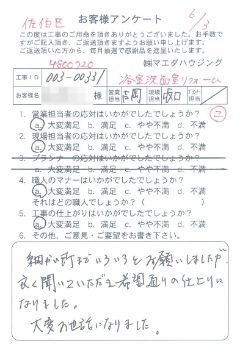 佐伯区
6/3
お客様アンケート
この度は工事のご用命を頂きありがとうございました。お手数ですがご記入頂き、ご返送頂きますようお願い申し上げます。
ご返送頂いた方から、毎月抽選で感謝品を進呈いたします。
4800720
㈱マエダハウジング
工事ID 003-00331 浴室洗面室リフォーム
お客様名 様 営業担当 現場担当 坂口 プランナー担当
②
1. 営業担当者の応対はいかがでしたでしょうか？
a.大変満足 b.満足 c.やや不満 d.不満
2. 現場担当者の応対はいかがでしたでしょうか？
a.大変満足 b.満足 c.やや不満 d.不満
3. プランナーの応対はいかがでしたでしょうか？
a.大変満足 b.満足 c.やや不満 d.不満
4. 職人のマナーはいかがでしたでしょうか？
a.大変満足 b.満足 c.やや不満 d.不満
それはどの職人でしょうか？（ ）
5. 工事の仕上がりはいかがでしたでしょうか？
a.大変満足 b.満足 c.やや不満 d.不満
6. その他、ご意見・ご要望をお書き下さい。
細かい所までいろいろとお願いしましたが、
良く聞いていただき希望通りの仕上りに
なりました。
大変お世話になりました。